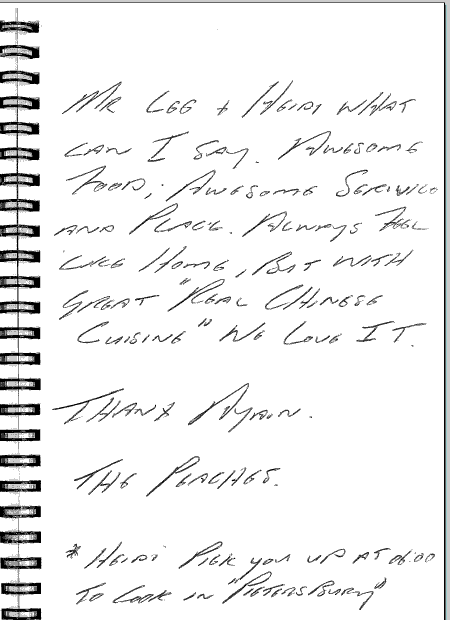 MR LEE + HEIDI WHAT
CAN I SAY. AWESOME
FOOD, AWESOME SERVICE
AND PLACE. ALWAYS FEEL
LIKE HOME, BUT WITH
GREAT "REAL CHINESE
CUISINE" WE LOVE IT.
THANX AGAIN.
THE PEACHES.
* HEIDI PICK YOU UP AT 06:00
TO COOK IN "PIETERSBURG"